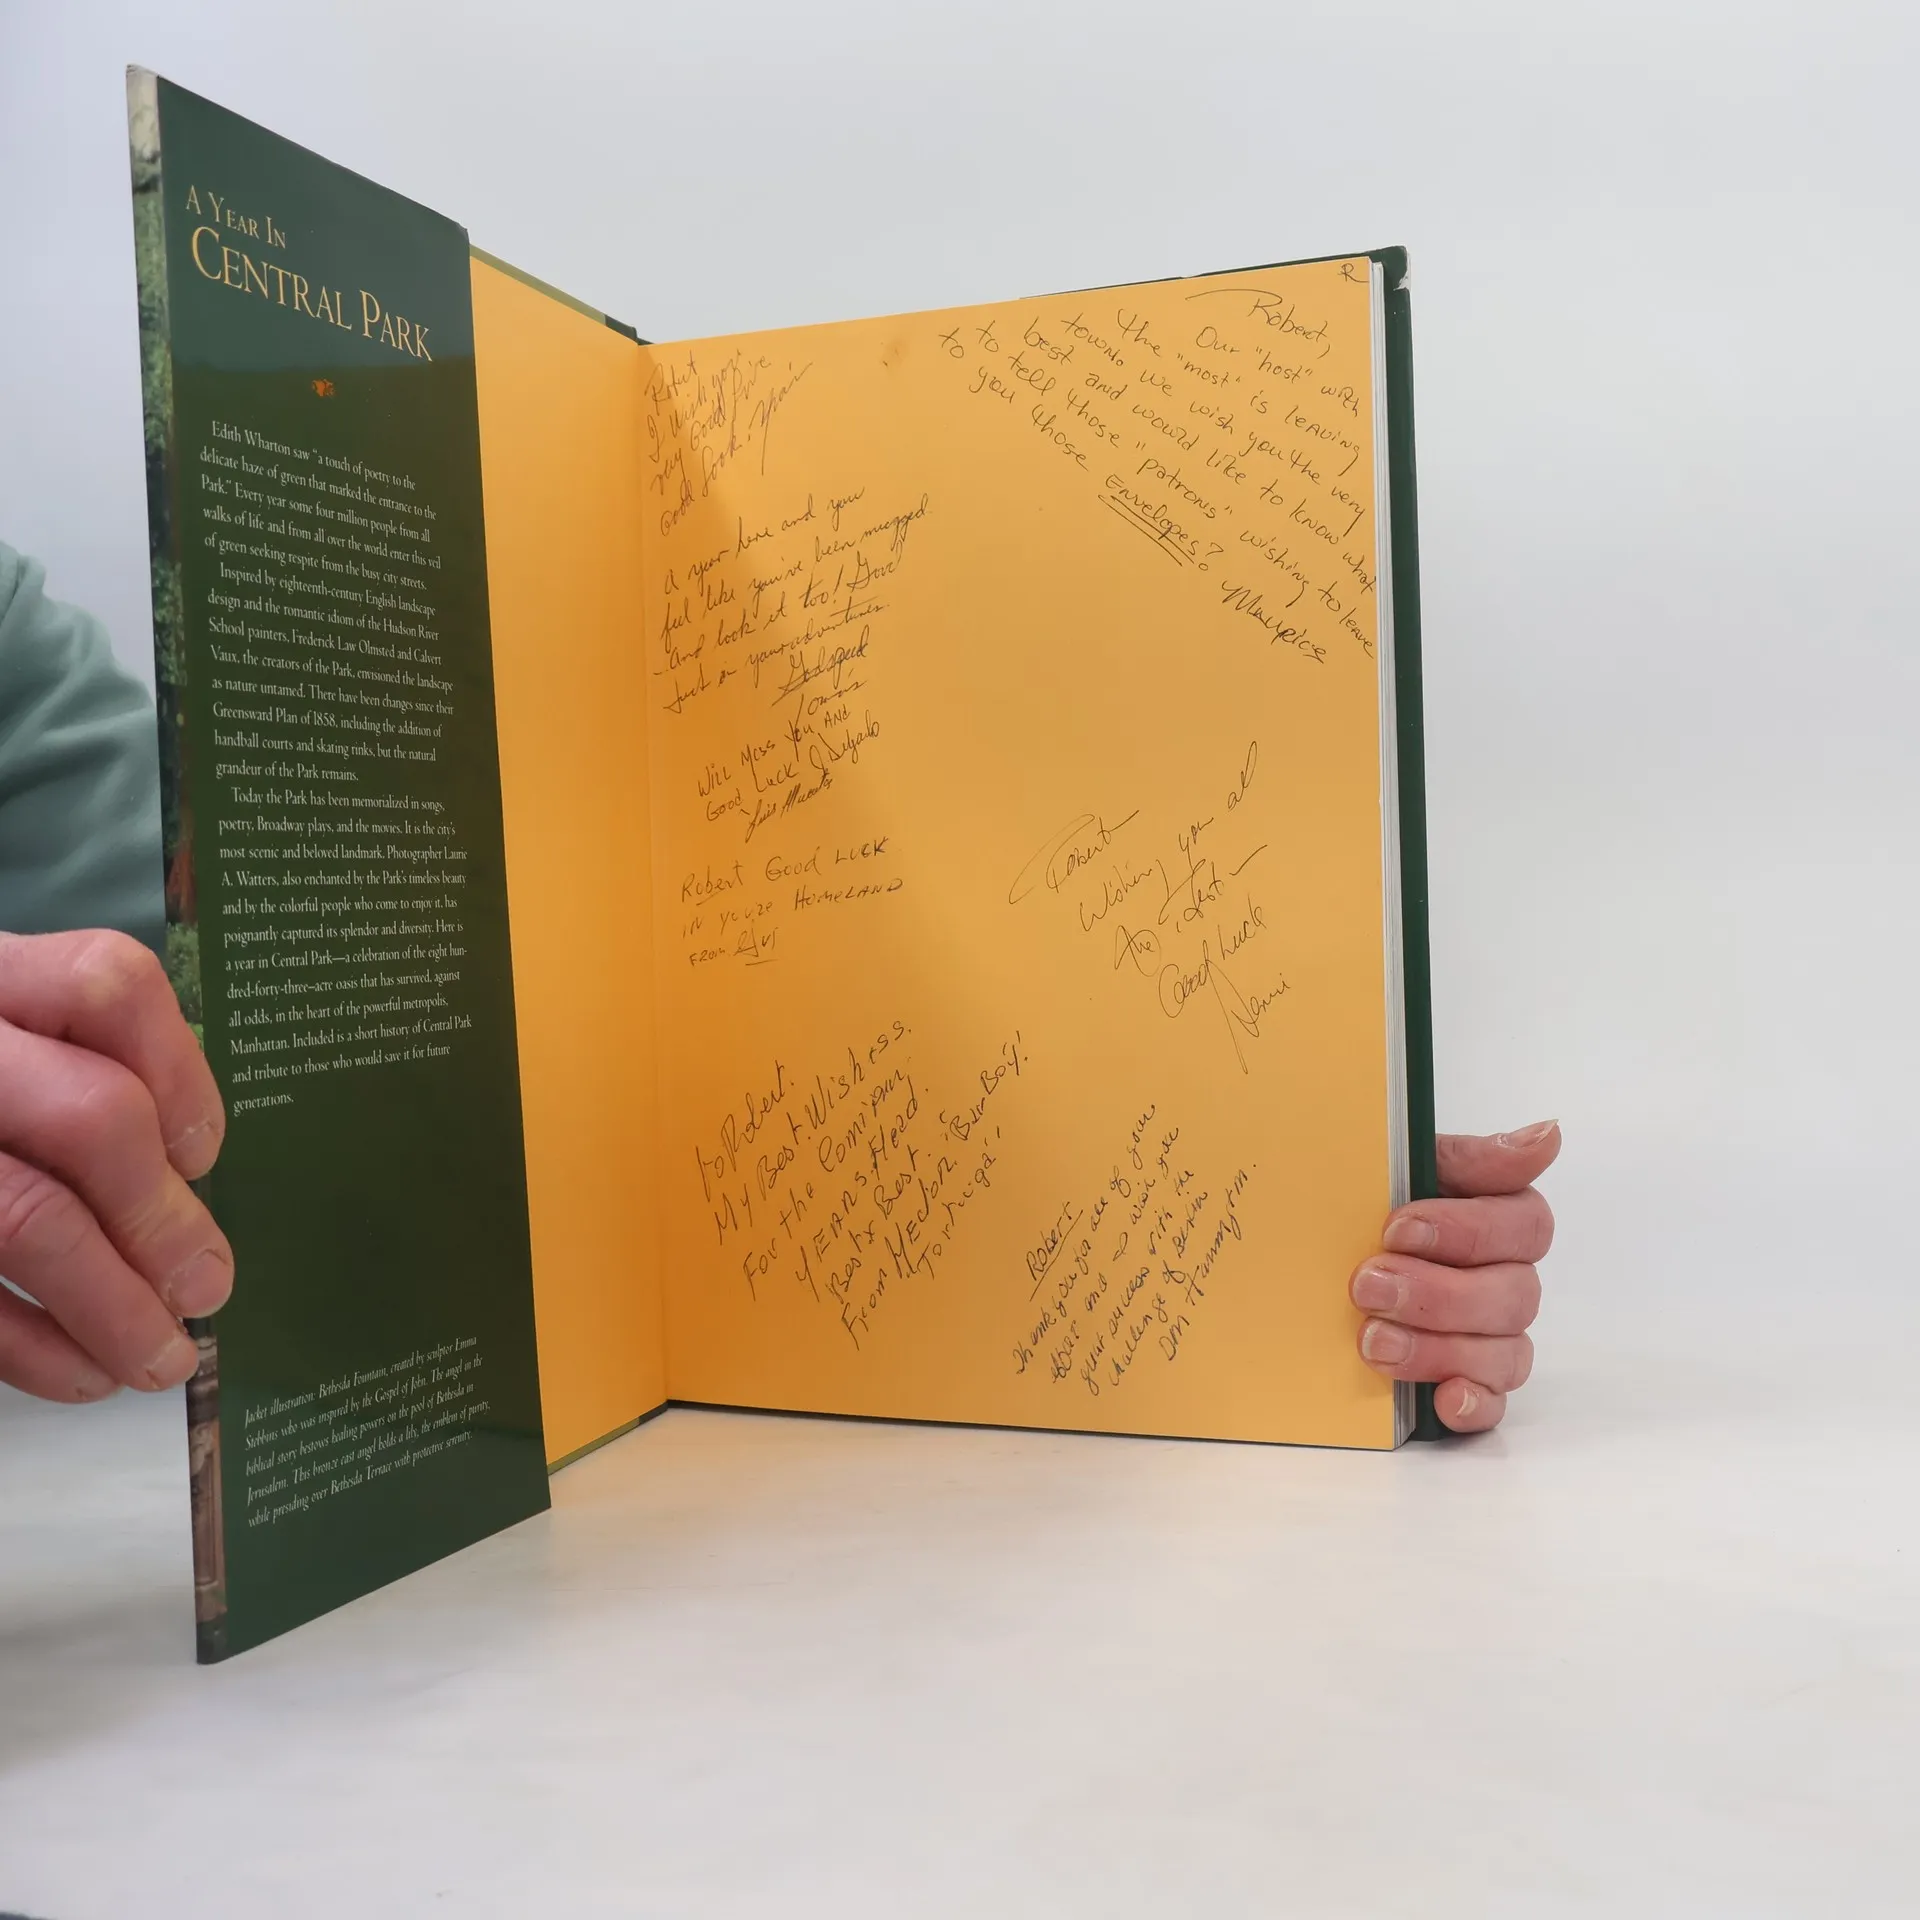 A YEAR IN
CENTRAL PARK
Edith Wharton saw "a touch of poetry to the
delicate haze of green that marked the entrance to the
Park." Every year some four million people from all
walks of life and from all over the world enter this veil
of green seeking respite from the busy city streets.
Inspired by eighteenth-century English landscape
design and the romantic idiom of the Hudson River
School painters, Frederick Law Olmsted and Calvert
Vaux, the creators of the Park, envisioned the landscape
as nature untamed. There have been changes since their
Greensward Plan of 1858, including the addition of
handball courts and skating rinks, but the natural
grandeur of the Park remains.
Today the Park has been memorialized in songs,
poetry, Broadway plays, and the movies. It is the city's
most scenic and beloved landmark. Photographer Laurie
A. Watters, also enchanted by the Park's timeless beauty
and by the colorful people who come to enjoy it, has
poignantly captured its splendor and diversity. Here is
a year in Central Park—a celebration of the eight hun-
dred-forty-three-acre oasis that has survived, against
all odds, in the heart of the powerful metropolis,
Manhattan. Included is a short history of Central Park
and tribute to those who would save it for future
generations.
Jacket illustration: Bethesda Fountain, created by sculptor Emma
Stebbins who was inspired by the Gospel of John. The angel in the
biblical story bestows healing powers on the pool of Bethesda in
Jerusalem. This bronze cast angel holds a lily, the emblem of purity,
while presiding over Bethesda Terrace with protective serenity.
Robert
I wish you
very Good
Good Look.
A year here and you
feel like you've been mugged
- And look it too! Good
luck in your adventures.
Godspeed
Tomás
Will Miss You AND
Good Luck J Delgado
Luis
Robert Good Luck
in you're HOMELAND
FROM
to Robert.
My Best Wishess.
For the Coming
YEARS AHead.
Best x Best.
From Hector. "Bar Boy!
Tortuga"
R
Robert,
Our "host" with
the "most" is leaving
town so we wish you the very
best and would like to know what
to tell those "patrons" wishing to leave
to you those Envelopes?
Maurice
Robert
Wishing you al
the Best
Good Luck
Robert
Thank you for all of your
effort and so wish you
great success with the
challenge of